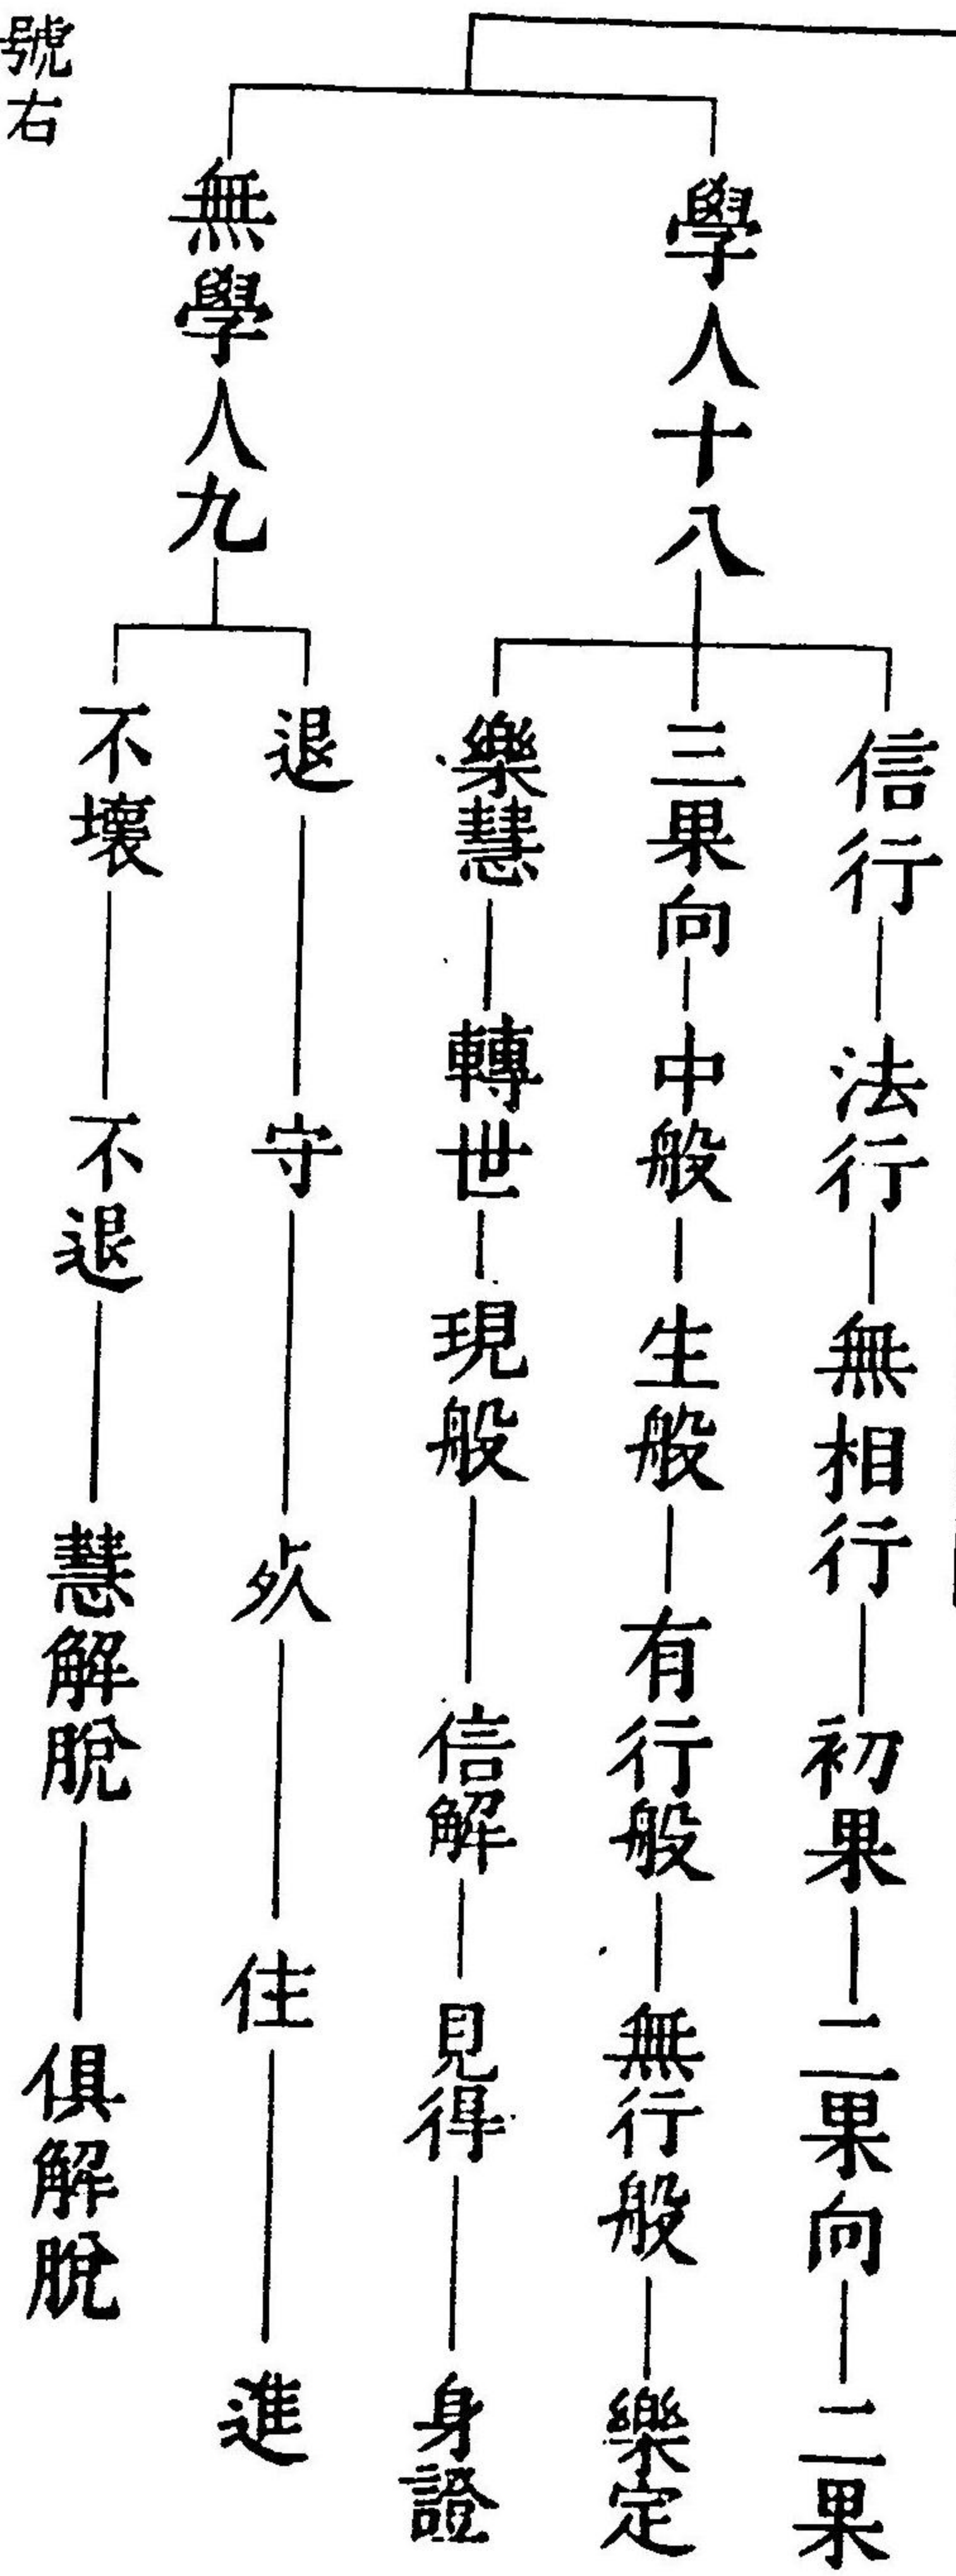 學人十八
信行—法行—無相行—初果—二果向—二果
三果向—中般—生般—有行般—無行般—樂定
樂慧—轉世—現般—信解—見得—身證
無學人九
退—守—𣦸—住—進
不壞—不退—慧解脫—俱解脫
號右